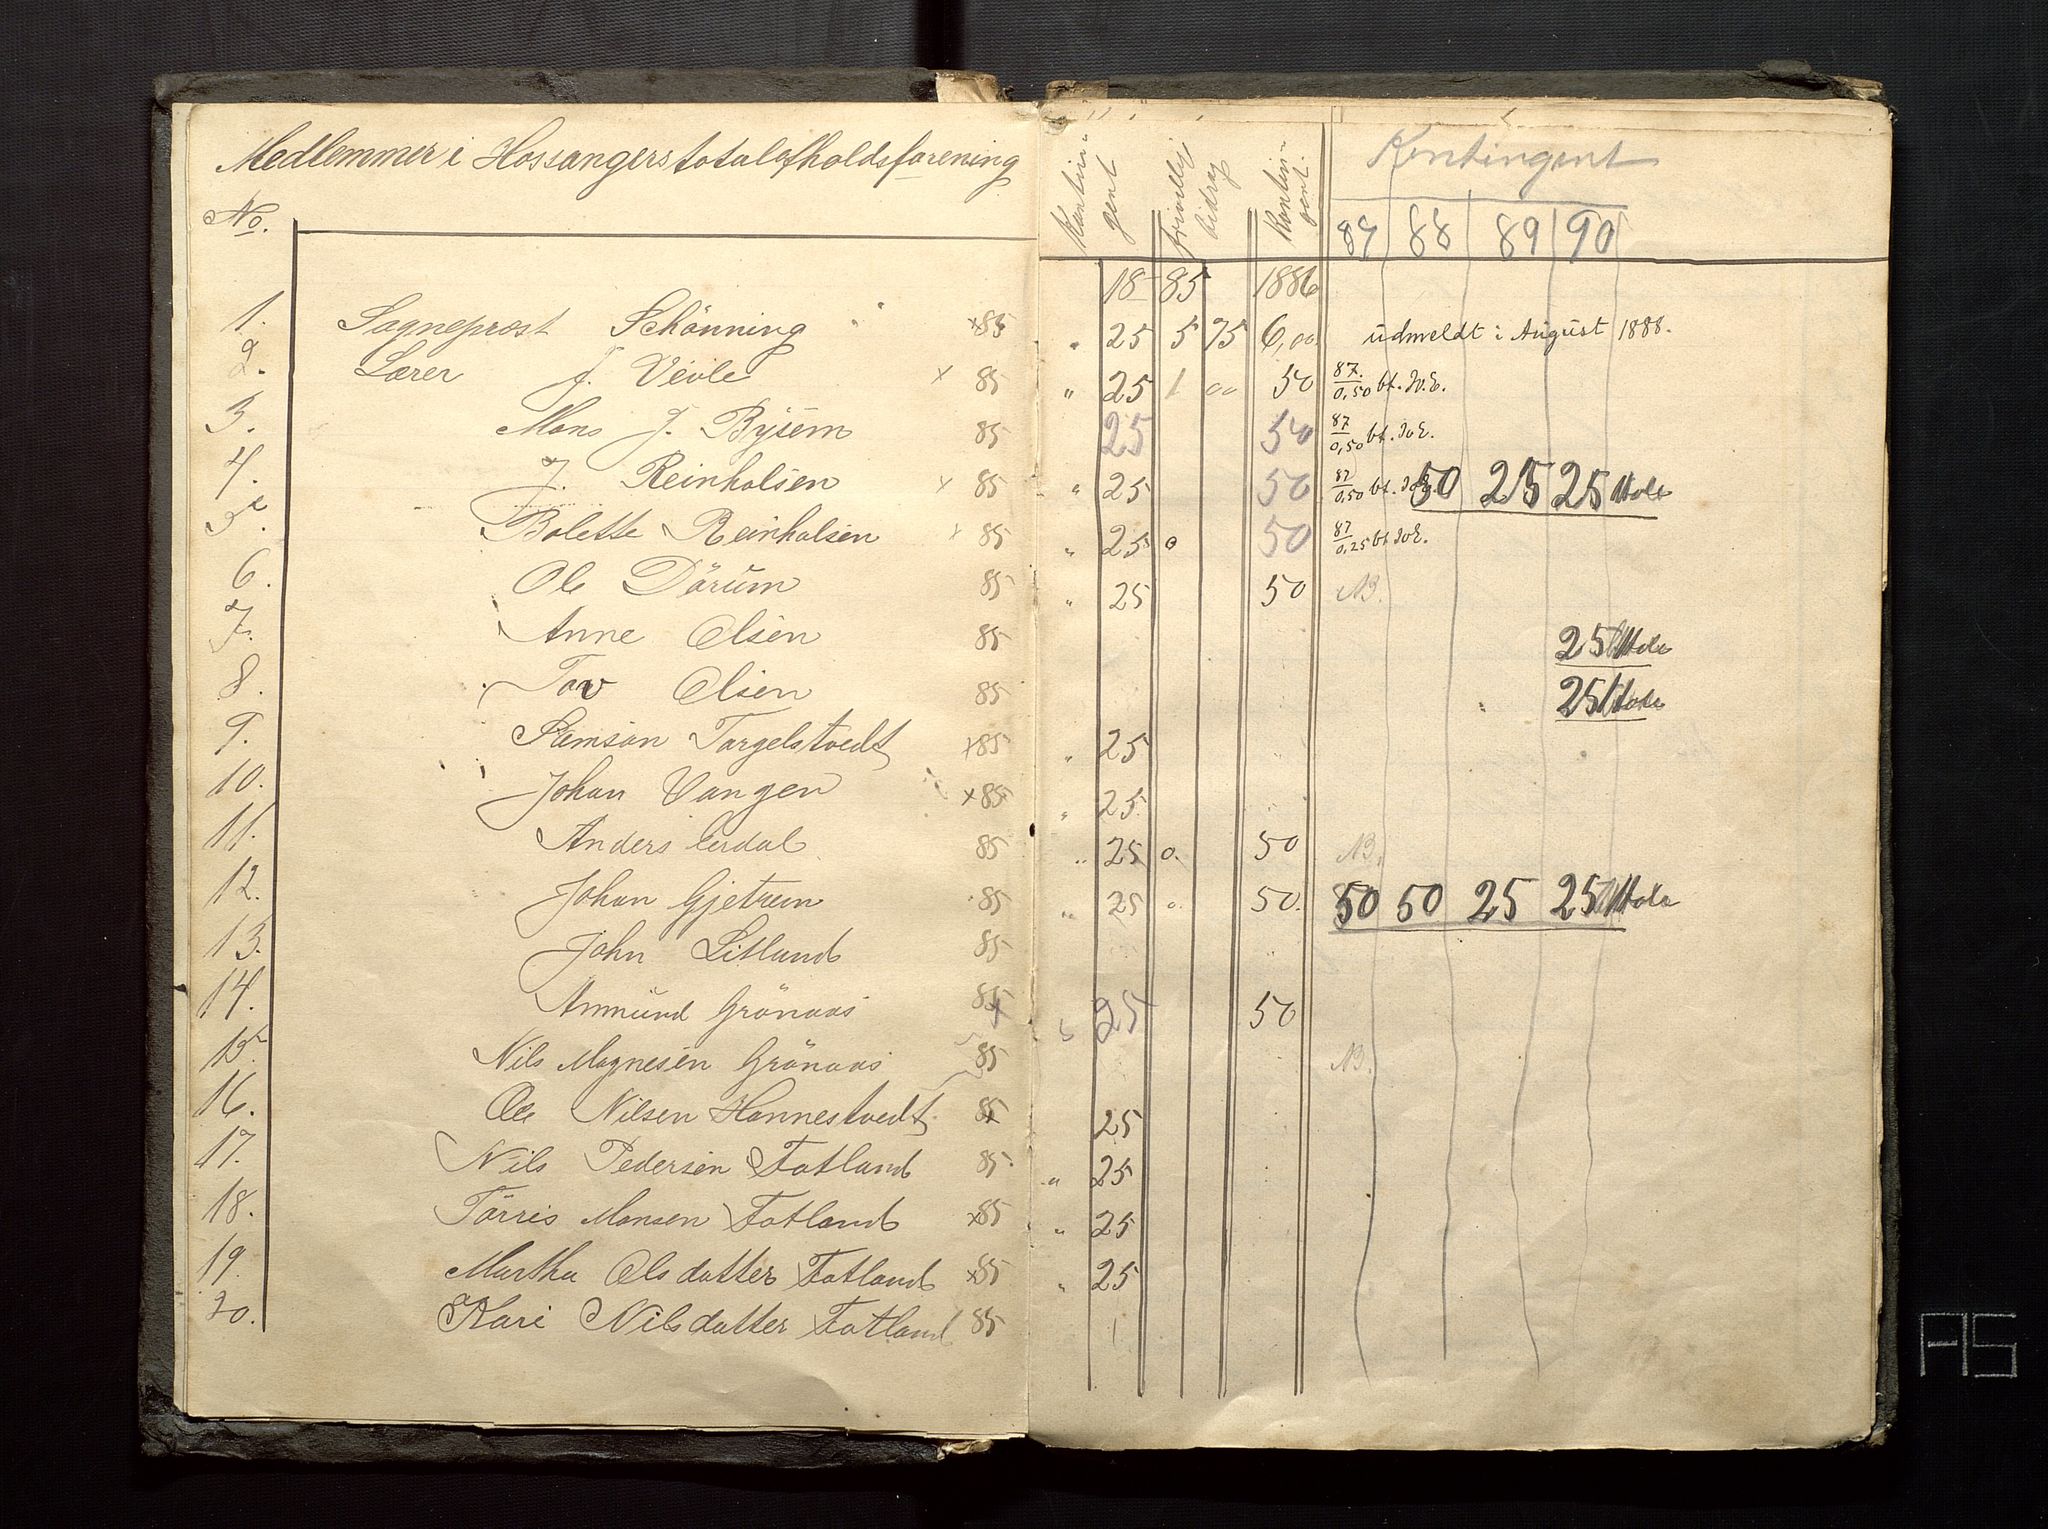 Medlemmer i Hossangers totalafholdsforening
No.
1. Sogneprest Schönning ×85
2. Lærer J. Vevle × 85
3. Mons J. Bysem 85
4. J. Reinholsen × 85
5. Bolette Reinholsen × 85
6. Ole Dörum 85
7. Anne Olsen 85
8. Tov Olsen 85
9. Samson Torgelstvedt ×85
10. Johan Vangen ×85
11. Anders Eerdal 85
12. Johan Gjetrem 85
13. John Litland 85
14. Anmund Grönaas 85
15. Nils Magnesen Grönaas 85
16. Ole Nilsen Hannestvedt 85
17. Nils Pedersen Fotland 85
18. Törris Monsen Fotland ×85
19. Martha Olsdatter Fotland ×85
20. Kari Nilsdatter Fotland 85
Kontin- gent frivillig bidrag Kontin- gent. Kontingent
87 88 89 90
18 85 1886
" 25 5 75 6,00 udmeldt i August 1888.
" 25 1 00 50 87. 0,50 bt.
25 50 87 0,50 bt.
" 25 50 87 0,50 bt. 50 25 25
" 25 0 50 87 0,25 bt
" 25 50 NB.
25
25
" 25
" 25
" 25 0. 50 NB.
" 25 0. 50. 50 50 25 25
25 50
NB.
25
" 25
" 25
" 25
AS